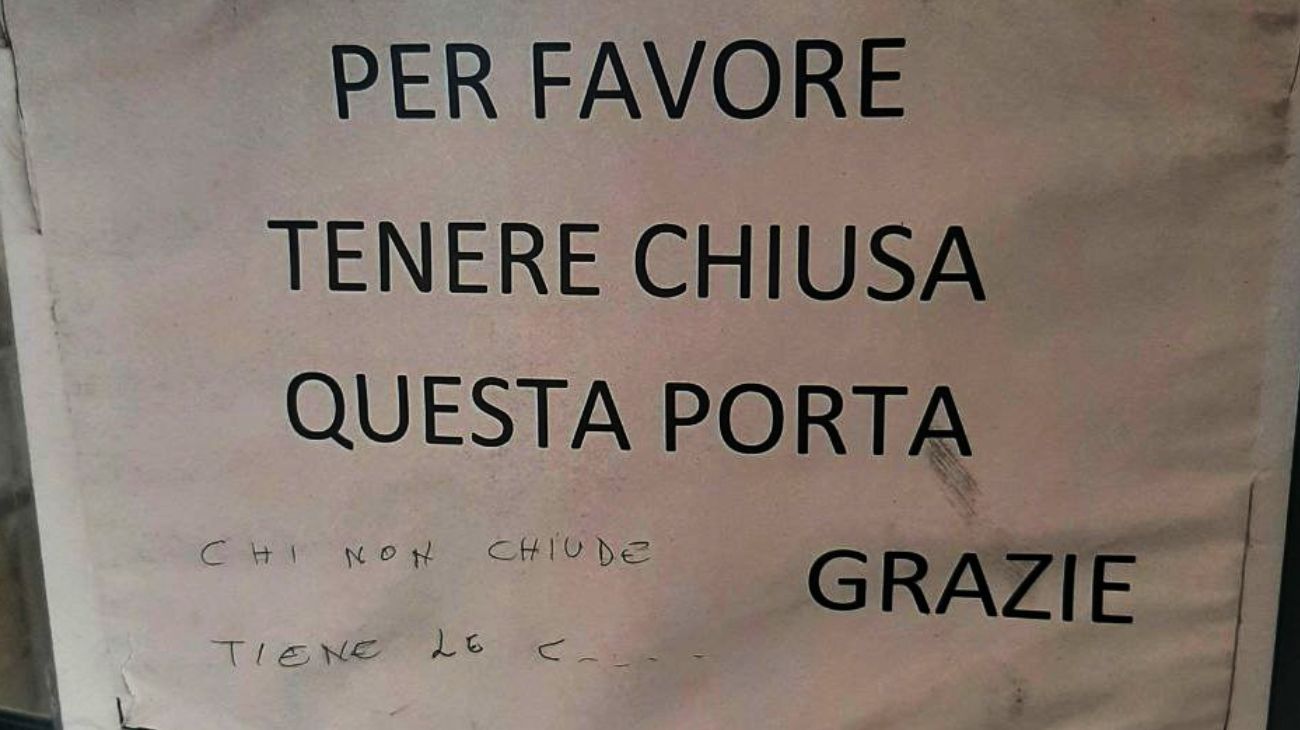 PER FAVORE
TENERE CHIUSA
QUESTA PORTA
GRAZIE
CHI NON CHIUDE
TIENE LE C_ _ _ _